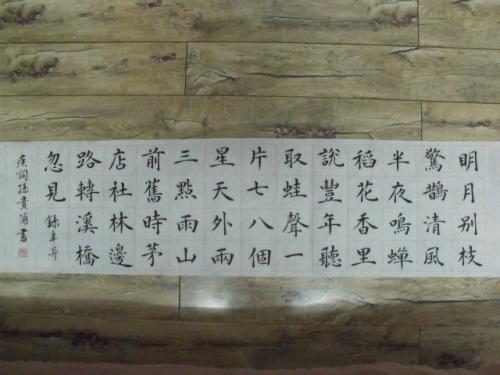 明月别枝
驚鵲清風
半夜鳴蟬
稻花香里
說豐年聽
取蛙聲一
片七八個
星天外兩
三點雨山
前舊時茅
店社林邊
路轉溪橋
忽見 錄辛弃
疾詞孫貴書